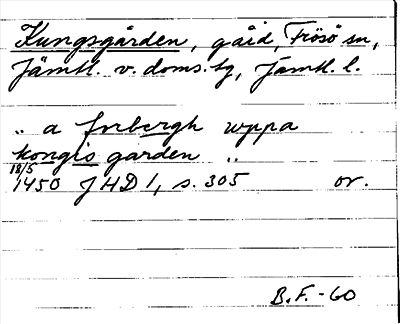 Kungsgården, gård, Frösö sn,
Jämtl. v. doms.tg, Jämtl. l.
„ a frøbergh uppa
kongis garden „
18/5
1450 JHD 1, s. 305 or.
B.F.-60